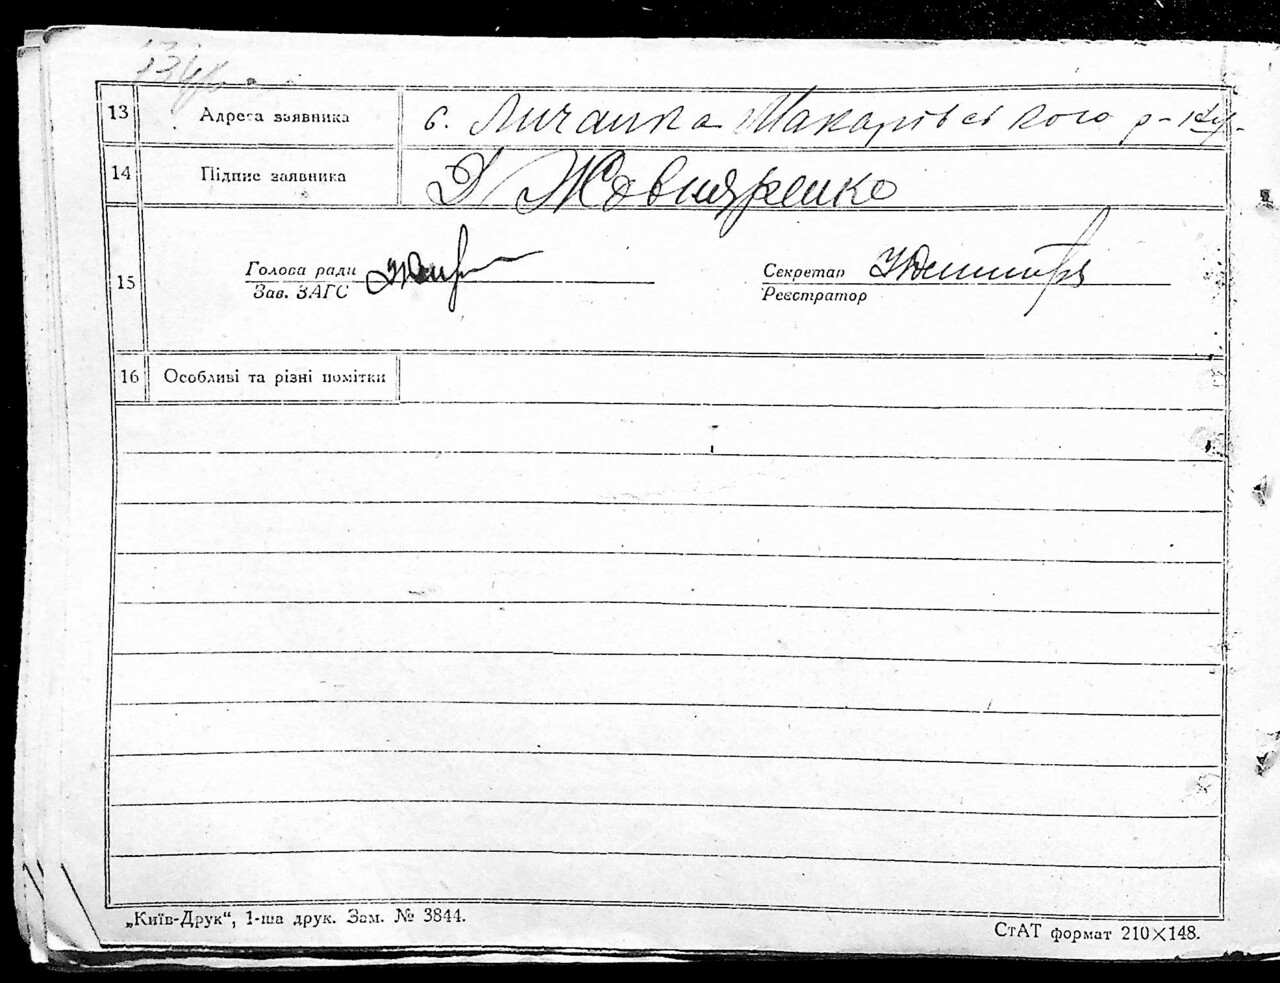 13 Адреса заявника с. Личанка Макарівського р-ну
14 Підпис заявника Жовняренко
15 Голова ради
Зав. ЗАГС
Секретар
Реєстратор
16 Особливі та різні помітки
„Київ-Друк“, 1-ша друк. Зам. № 3844.
СтАТ формат 210×148.